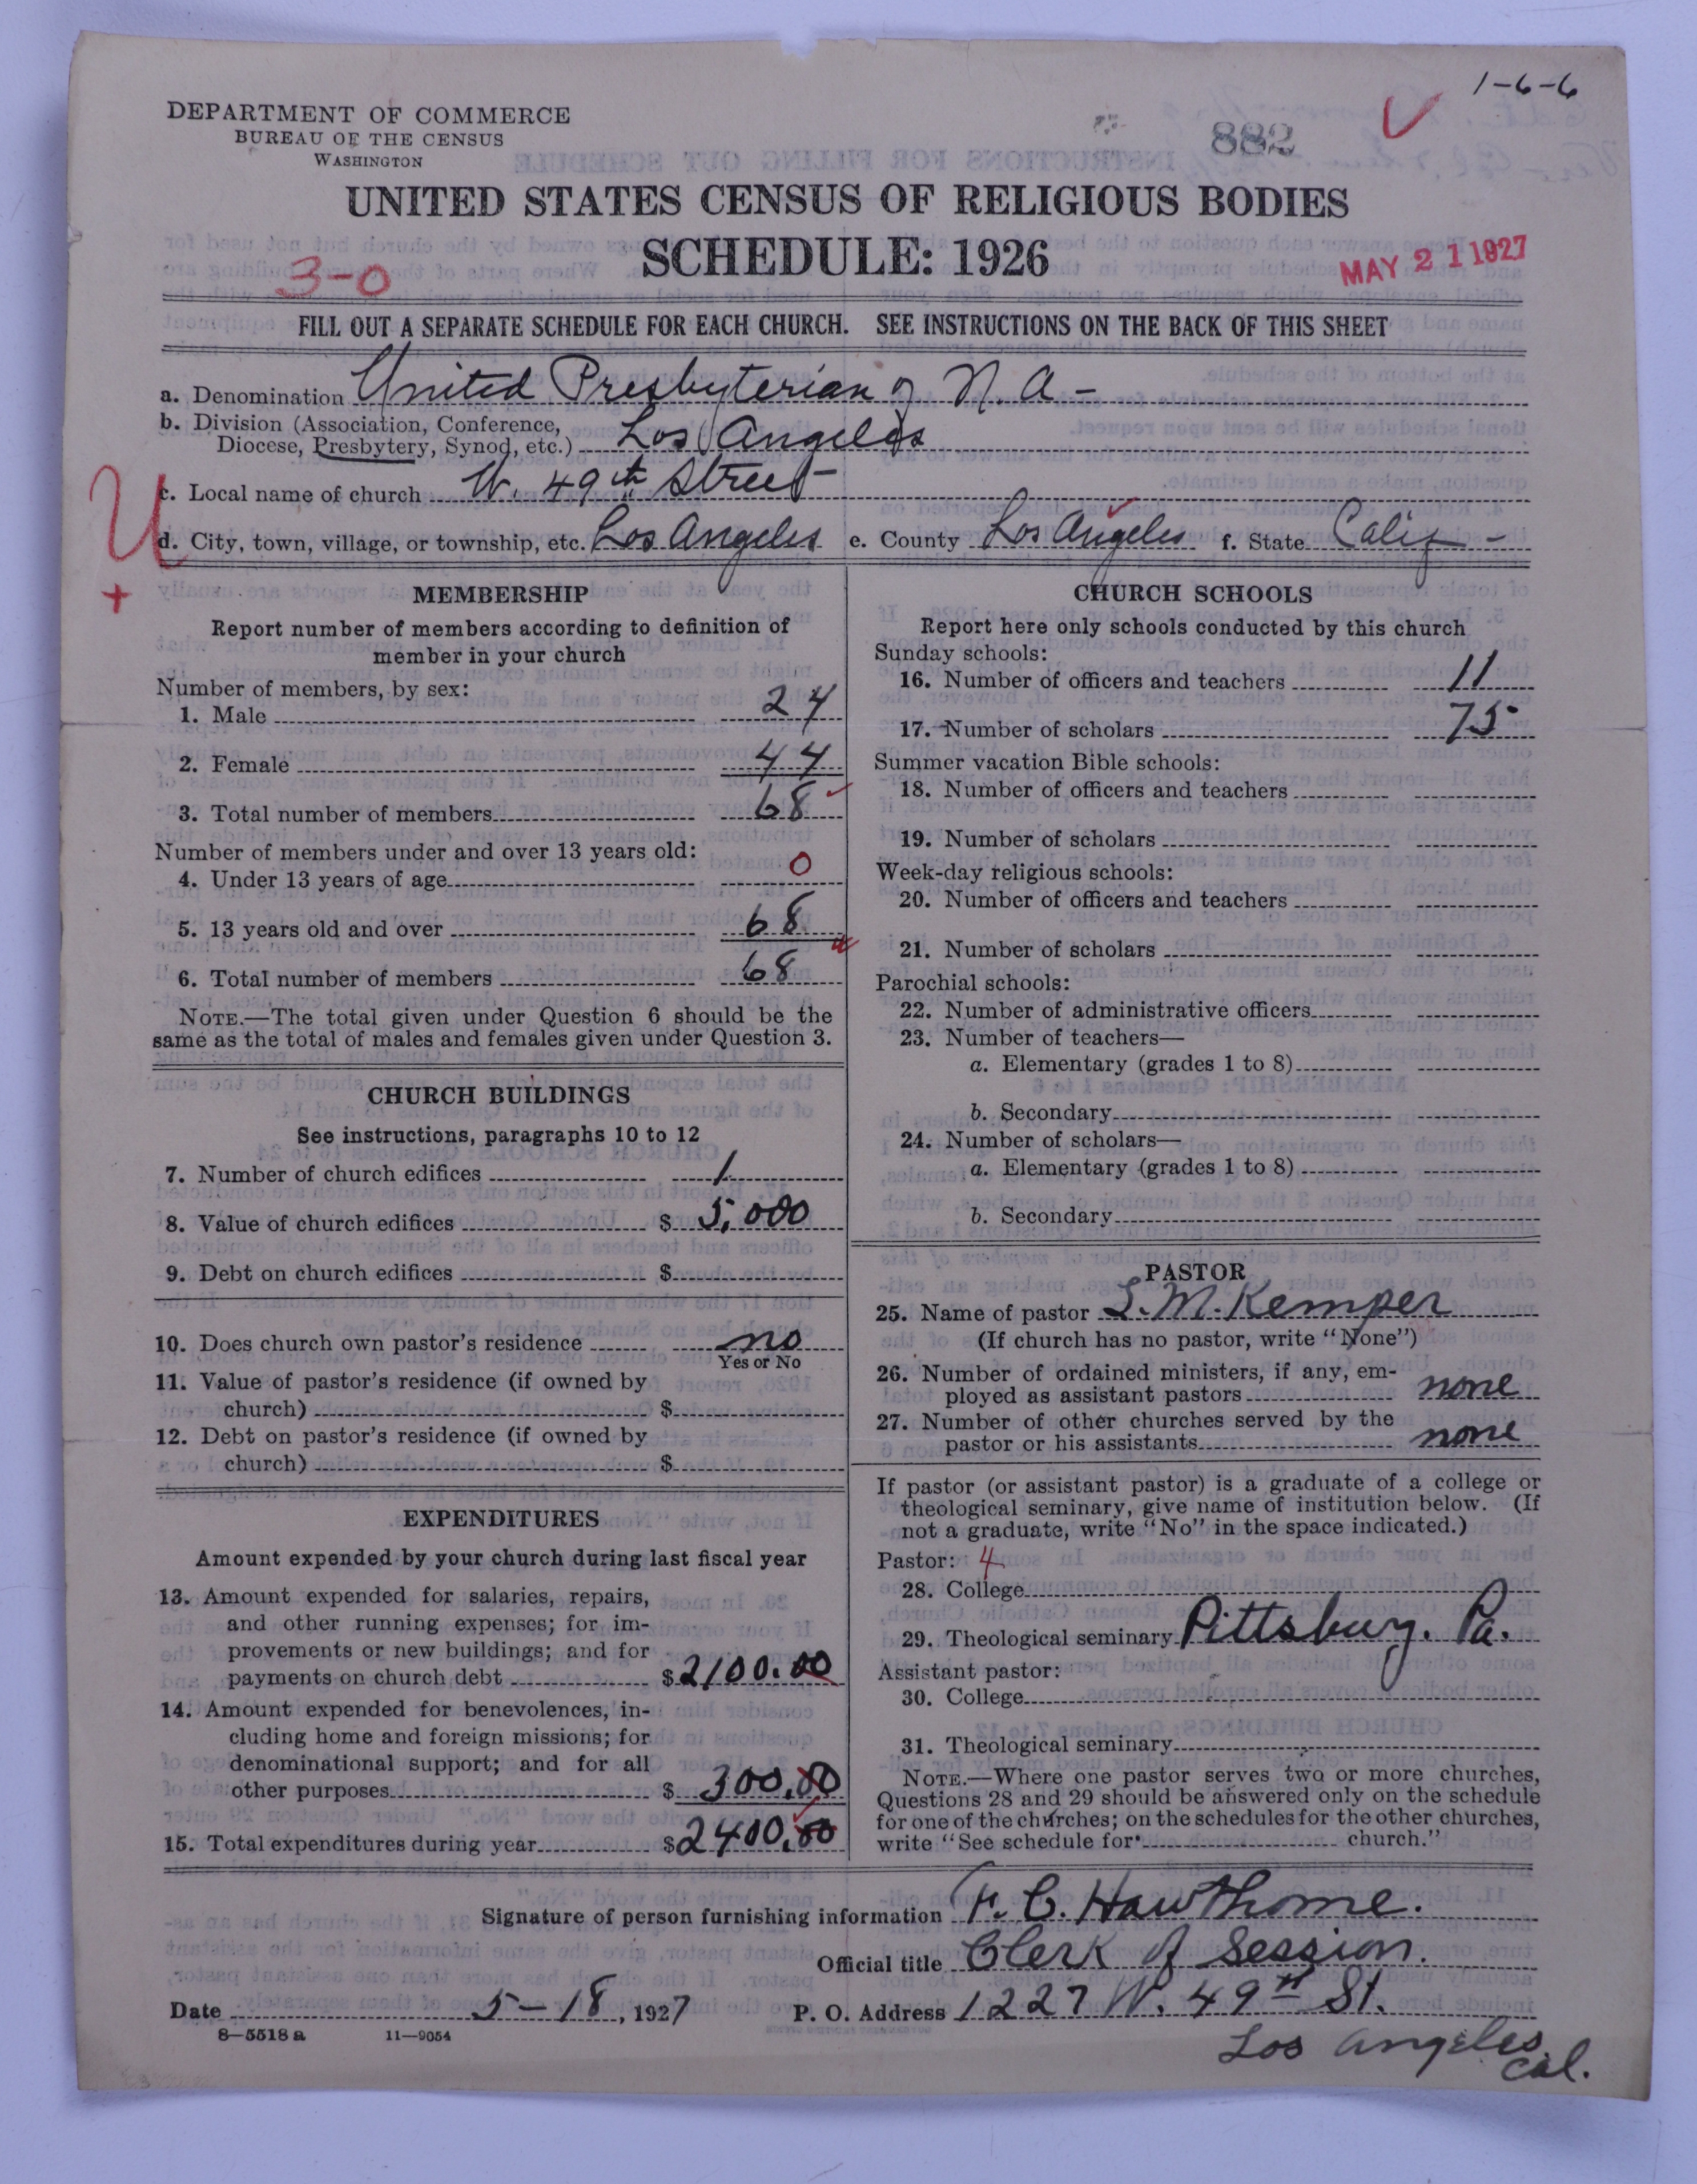 1-6-6
DEPARTMENT OF COMMERCE
BUREAU OF THE CENSUS
WASHINGTON
882
UNITED STATES CENSUS OF RELIGIOUS BODIES
SCHEDULE: 1926
3-0
MAY 21 1927
FILL OUT A SEPARATE SCHEDULE FOR EACH CHURCH. SEE INSTRUCTIONS ON THE BACK OF THIS SHEET
a. Denomination United Presbyterian of N.A-
b. Division (Association, Conference,
Diocese, Presbytery, Synod, etc.) Los Angeles
c. Local name of church W. 49th Street
U
d. City, town, village, or township, etc. Los Angeles e. County Los Angeles f. State Calif-
+
MEMBERSHIP
Report number of members according to definition of
member in your church
Number of members, by sex:
1. Male 24
2. Female 44
3. Total number of members 68
Number of members under and over 13 years old:
4. Under 13 years of age 0
5. 13 years old and over 68
6. Total number of members 68
NOTE.—The total given under Question 6 should be the
same as the total of males and females given under Question 3.
CHURCH BUILDINGS
See instructions, paragraphs 10 to 12
7. Number of church edifices 1
8. Value of church edifices $ 5,000
9. Debt on church edifices $
10. Does church own pastor's residence no
Yes or No
11. Value of pastor's residence (if owned by
church) $
12. Debt on pastor's residence (if owned by
church) $
EXPENDITURES
Amount expended by your church during last fiscal year
13. Amount expended for salaries, repairs,
and other running expenses; for im-
provements or new buildings; and for
payments on church debt $2100.00
14. Amount expended for benevolences, in-
cluding home and foreign missions; for
denominational support; and for all
other purposes $ 300.00
15. Total expenditures during year $2400.00
CHURCH SCHOOLS
Report here only schools conducted by this church
Sunday schools:
16. Number of officers and teachers 11
17. Number of scholars 75
Summer vacation Bible schools:
18. Number of officers and teachers
19. Number of scholars
Week-day religious schools:
20. Number of officers and teachers
21. Number of scholars
Parochial schools:
22. Number of administrative officers
23. Number of teachers—
a. Elementary (grades 1 to 8)
b. Secondary
24. Number of scholars—
a. Elementary (grades 1 to 8)
b. Secondary
PASTOR
25. Name of pastor S.M. Kemper
(If church has no pastor, write "None")
26. Number of ordained ministers, if any, em-
ployed as assistant pastors none
27. Number of other churches served by the
pastor or his assistants none
If pastor (or assistant pastor) is a graduate of a college or
theological seminary, give name of institution below. (If
not a graduate, write "No" in the space indicated.)
Pastor: 4
28. College
29. Theological seminary Pittsburg. Pa.
Assistant pastor:
30. College
31. Theological seminary
NOTE.—Where one pastor serves two or more churches,
Questions 28 and 29 should be answered only on the schedule
for one of the churches; on the schedules for the other churches,
write "See schedule for church."
Signature of person furnishing information F. C. Hawthorne.
Official title Clerk of Session.
Date 5-18, 1927 P. O. Address 1227 W. 49th St.
8—5518a 11—9054
Los Angeles
Cal.